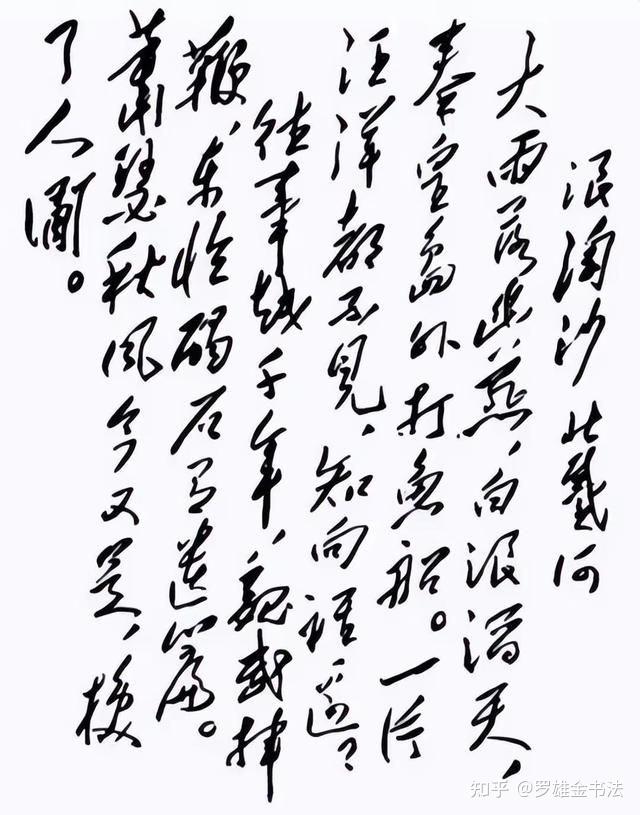 浪淘沙 北戴河
大雨落幽燕,白浪滔天,
秦皇島外打魚船。一片
汪洋都不見,知向誰邊?
往事越千年,魏武揮
鞭,東臨碣石有遺篇。
蕭瑟秋風今又是,換
了人間。
知乎 @罗雄金书法